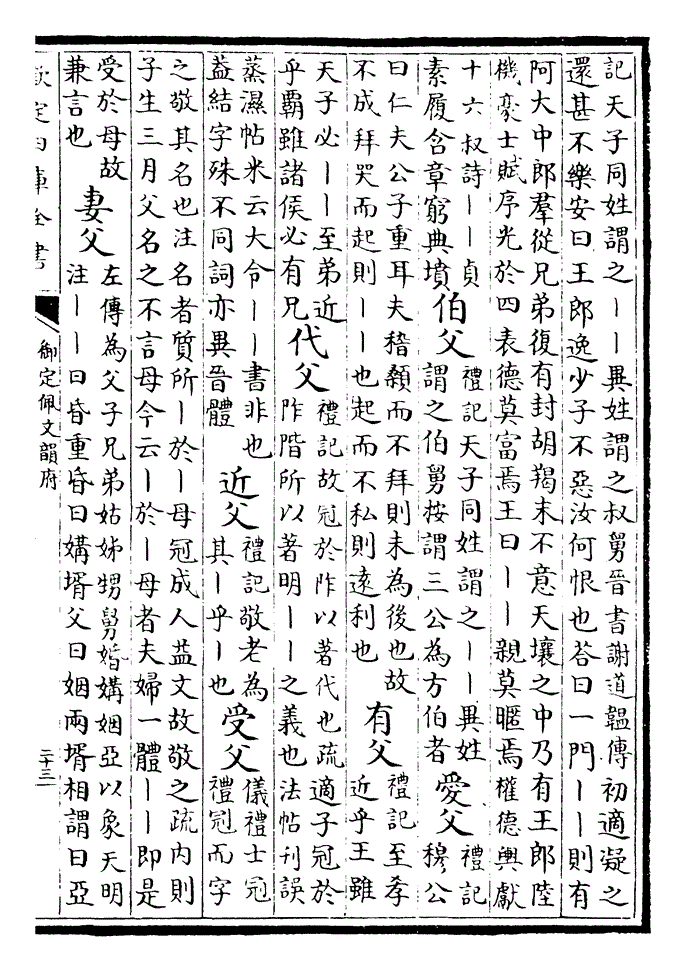 記天子同姓謂之丨丨異姓謂之叔舅晉書謝道韞傳初適凝之
還甚不樂安曰王郎逸少子不惡汝何恨也答曰一門丨丨則有
阿大中郎羣從兄弟復有封胡羯末不意天壤之中乃有王郎陸
機豪士賦序光於四表德莫富焉王曰丨丨親莫暱焉權德輿獻
十六叔詩丨丨貞
素履含章窮典墳
伯父
禮記天子同姓謂之丨丨異姓
謂之伯舅按謂三公為方伯者
愛父
禮記
穆公
曰仁夫公子重耳夫稽顙而不拜則未為後也故
不成拜哭而起則丨丨也起而不私則遠利也
有父
禮記至孝
近乎王雖
天子必丨丨至弟近
乎霸雖諸侯必有兄
代父
禮記故冠於阼以著代也疏適子冠於
阼階所以著明丨丨之義也法帖刊誤
蒸濕帖米云大令丨丨書非也
益結字殊不同詞亦異晉體
近父
禮記敬老為
其丨乎丨也
受父
儀禮士冠
禮冠而字
之敬其名也注名者質所丨於丨母冠成人益文故敬之疏内則
子生三月父名之不言母今云丨於丨母者夫婦一體丨丨即是
受於母故
兼言也
妻父
左傳為父子兄弟姑姊甥舅婚媾姻亞以象天明
注丨丨曰昏重昏曰媾壻父曰姻兩壻相謂曰亞
欽定四庫全書
御定佩文韻府
二十三